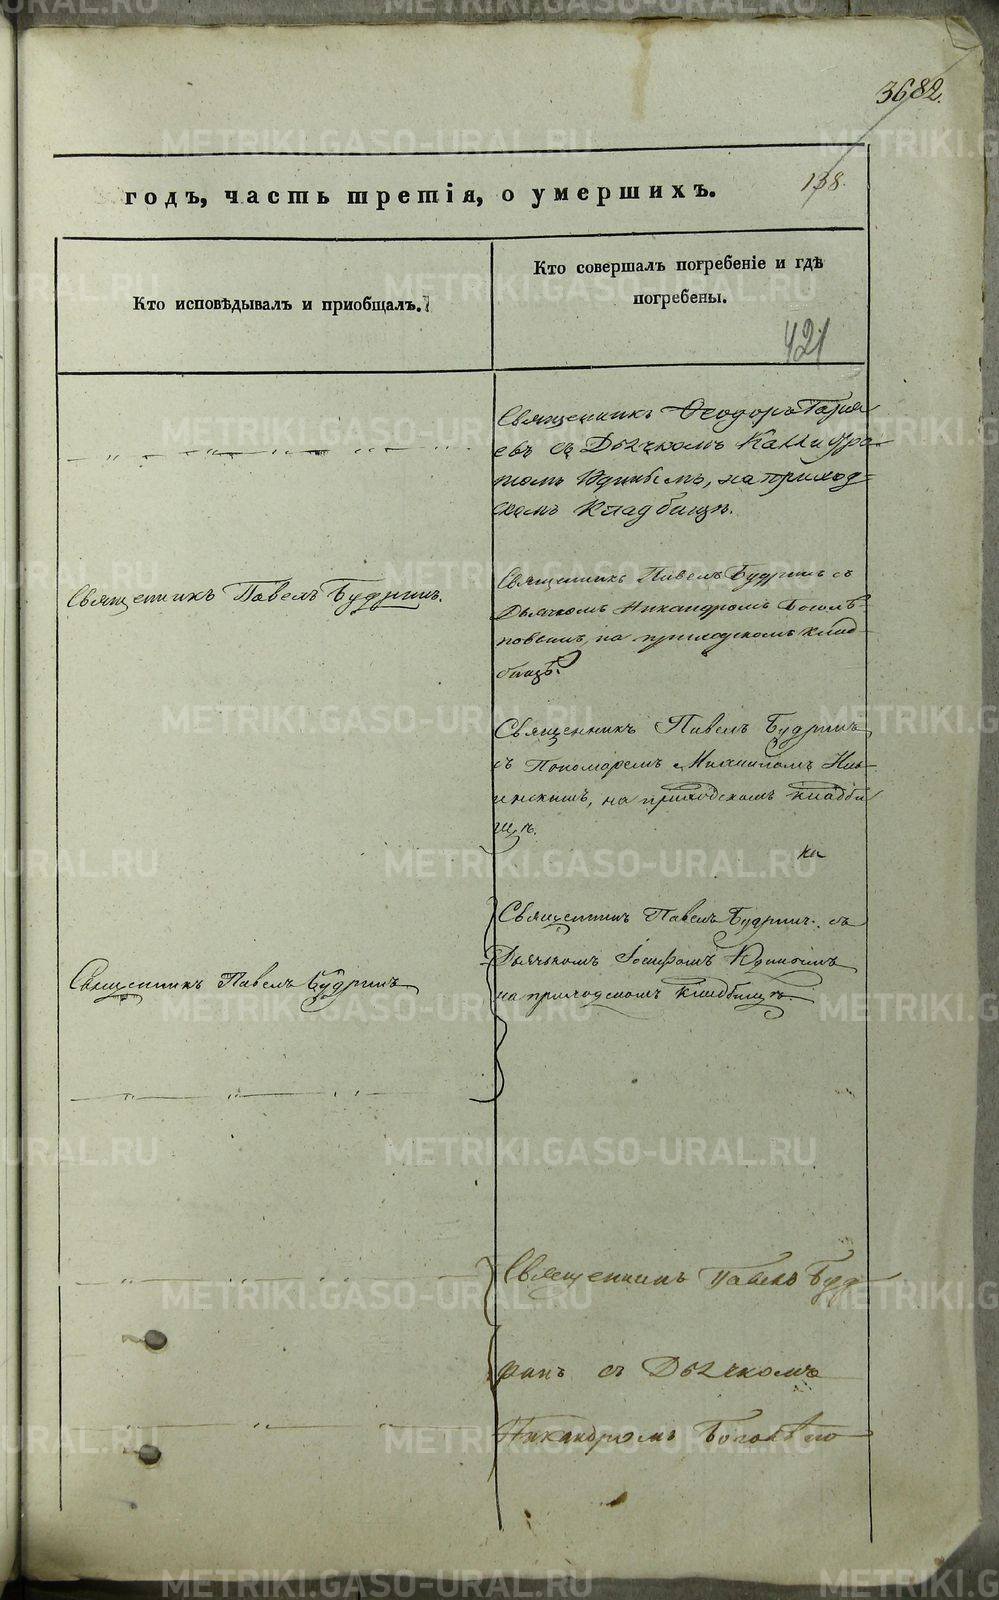 3682.
138.
годъ, часть третія, о умершихъ.
Кто исповѣдывалъ и приобщалъ.
Кто совершалъ погребеніе и гдѣ
погребены.
421
Священникъ Ѳеодоръ
евъ съ Дьячкомъ Каллистра-
томъ на приход-
скомъ Кладбищѣ.
Священникъ Павелъ Будринъ.
Священникъ Павелъ Будринъ съ
Дьячкомъ Никандромъ Боголѣ-
повымъ, на приходскомъ клад-
бищѣ.
Священникъ Павелъ Будринъ
съ Пономаремъ
на приходскомъ кладби
щѣ.
Священникъ Павелъ Будринъ
Священникъ Павелъ Будринъ съ
Дьячкомъ Іосифомъ
на приходскомъ кладбищѣ.
Священникъ Павелъ Буд
ринъ съ Дьячкомъ
Никандромъ Боголѣпо
METRIKI.GASO-URAL.RU